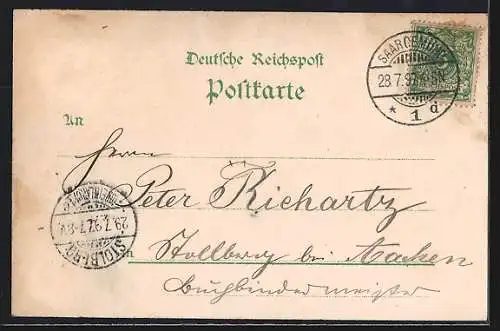 Deutsche Reichspost
Postkarte
SAARGEMÜND
28.7.97.
* 1 d
An
Herrn
Peter Richartz
29.7.97.
STOLBERG
in Stollberg bei Aachen
Buchbindermeister